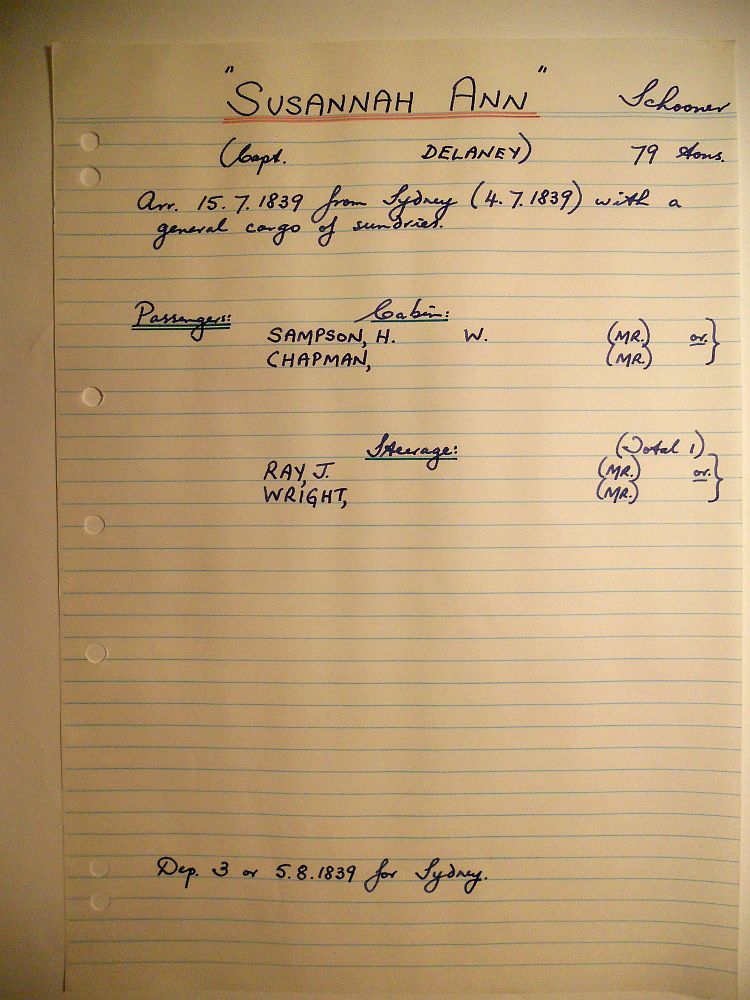 "SUSANNAH ANN" Schooner
(Capt. DELANEY) 79 tons.
Arr. 15.7.1839 from Sydney (4.7.1839) with a
general cargo of sundries.
Passengers: Cabin:
SAMPSON, H. W. (MR.) or }
CHAPMAN, (MR.)
Steerage: (Total 1)
RAY, J. (MR.) or }
WRIGHT, (MR.)
Dep. 3 or 5.8.1839 for Sydney.